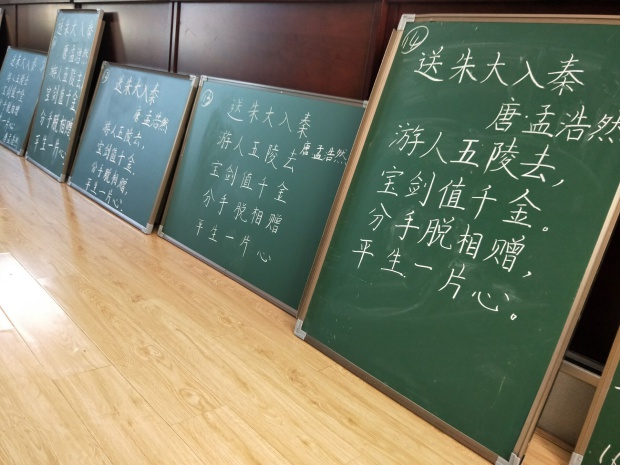 送朱大入秦
唐孟浩
游人五陵去
宝剑值千金
分手脱相赠
平生一片心
送朱大入秦
唐·孟浩然
游人五陵去,
宝剑值千金
分手脱相赠,
平生一片心.
送朱大入秦
唐孟浩然
游人五陵去
宝剑值千金
分手脱相赠
平生一片心
⑭
送朱大入秦
唐·孟浩然
游人五陵去,
宝剑值千金。
分手脱相赠,
平生一片心。